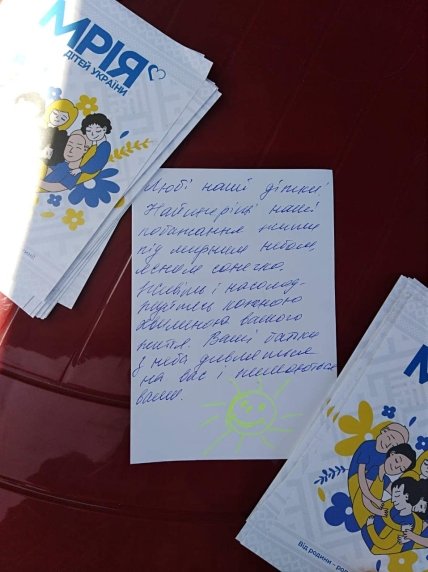 МРІЯ
ДІТЕЙ УКРАЇНИ
Любі наші дітки!
Найщиріші наші
побажання жити
під мирним небом,
ясним сонечком.
Живіть і насолод-
жуйтесь кожною
хвилиною вашого
життя. Ваші батьки
з неба дивляться
на вас і пишаються
вами.
М
Від родини - род